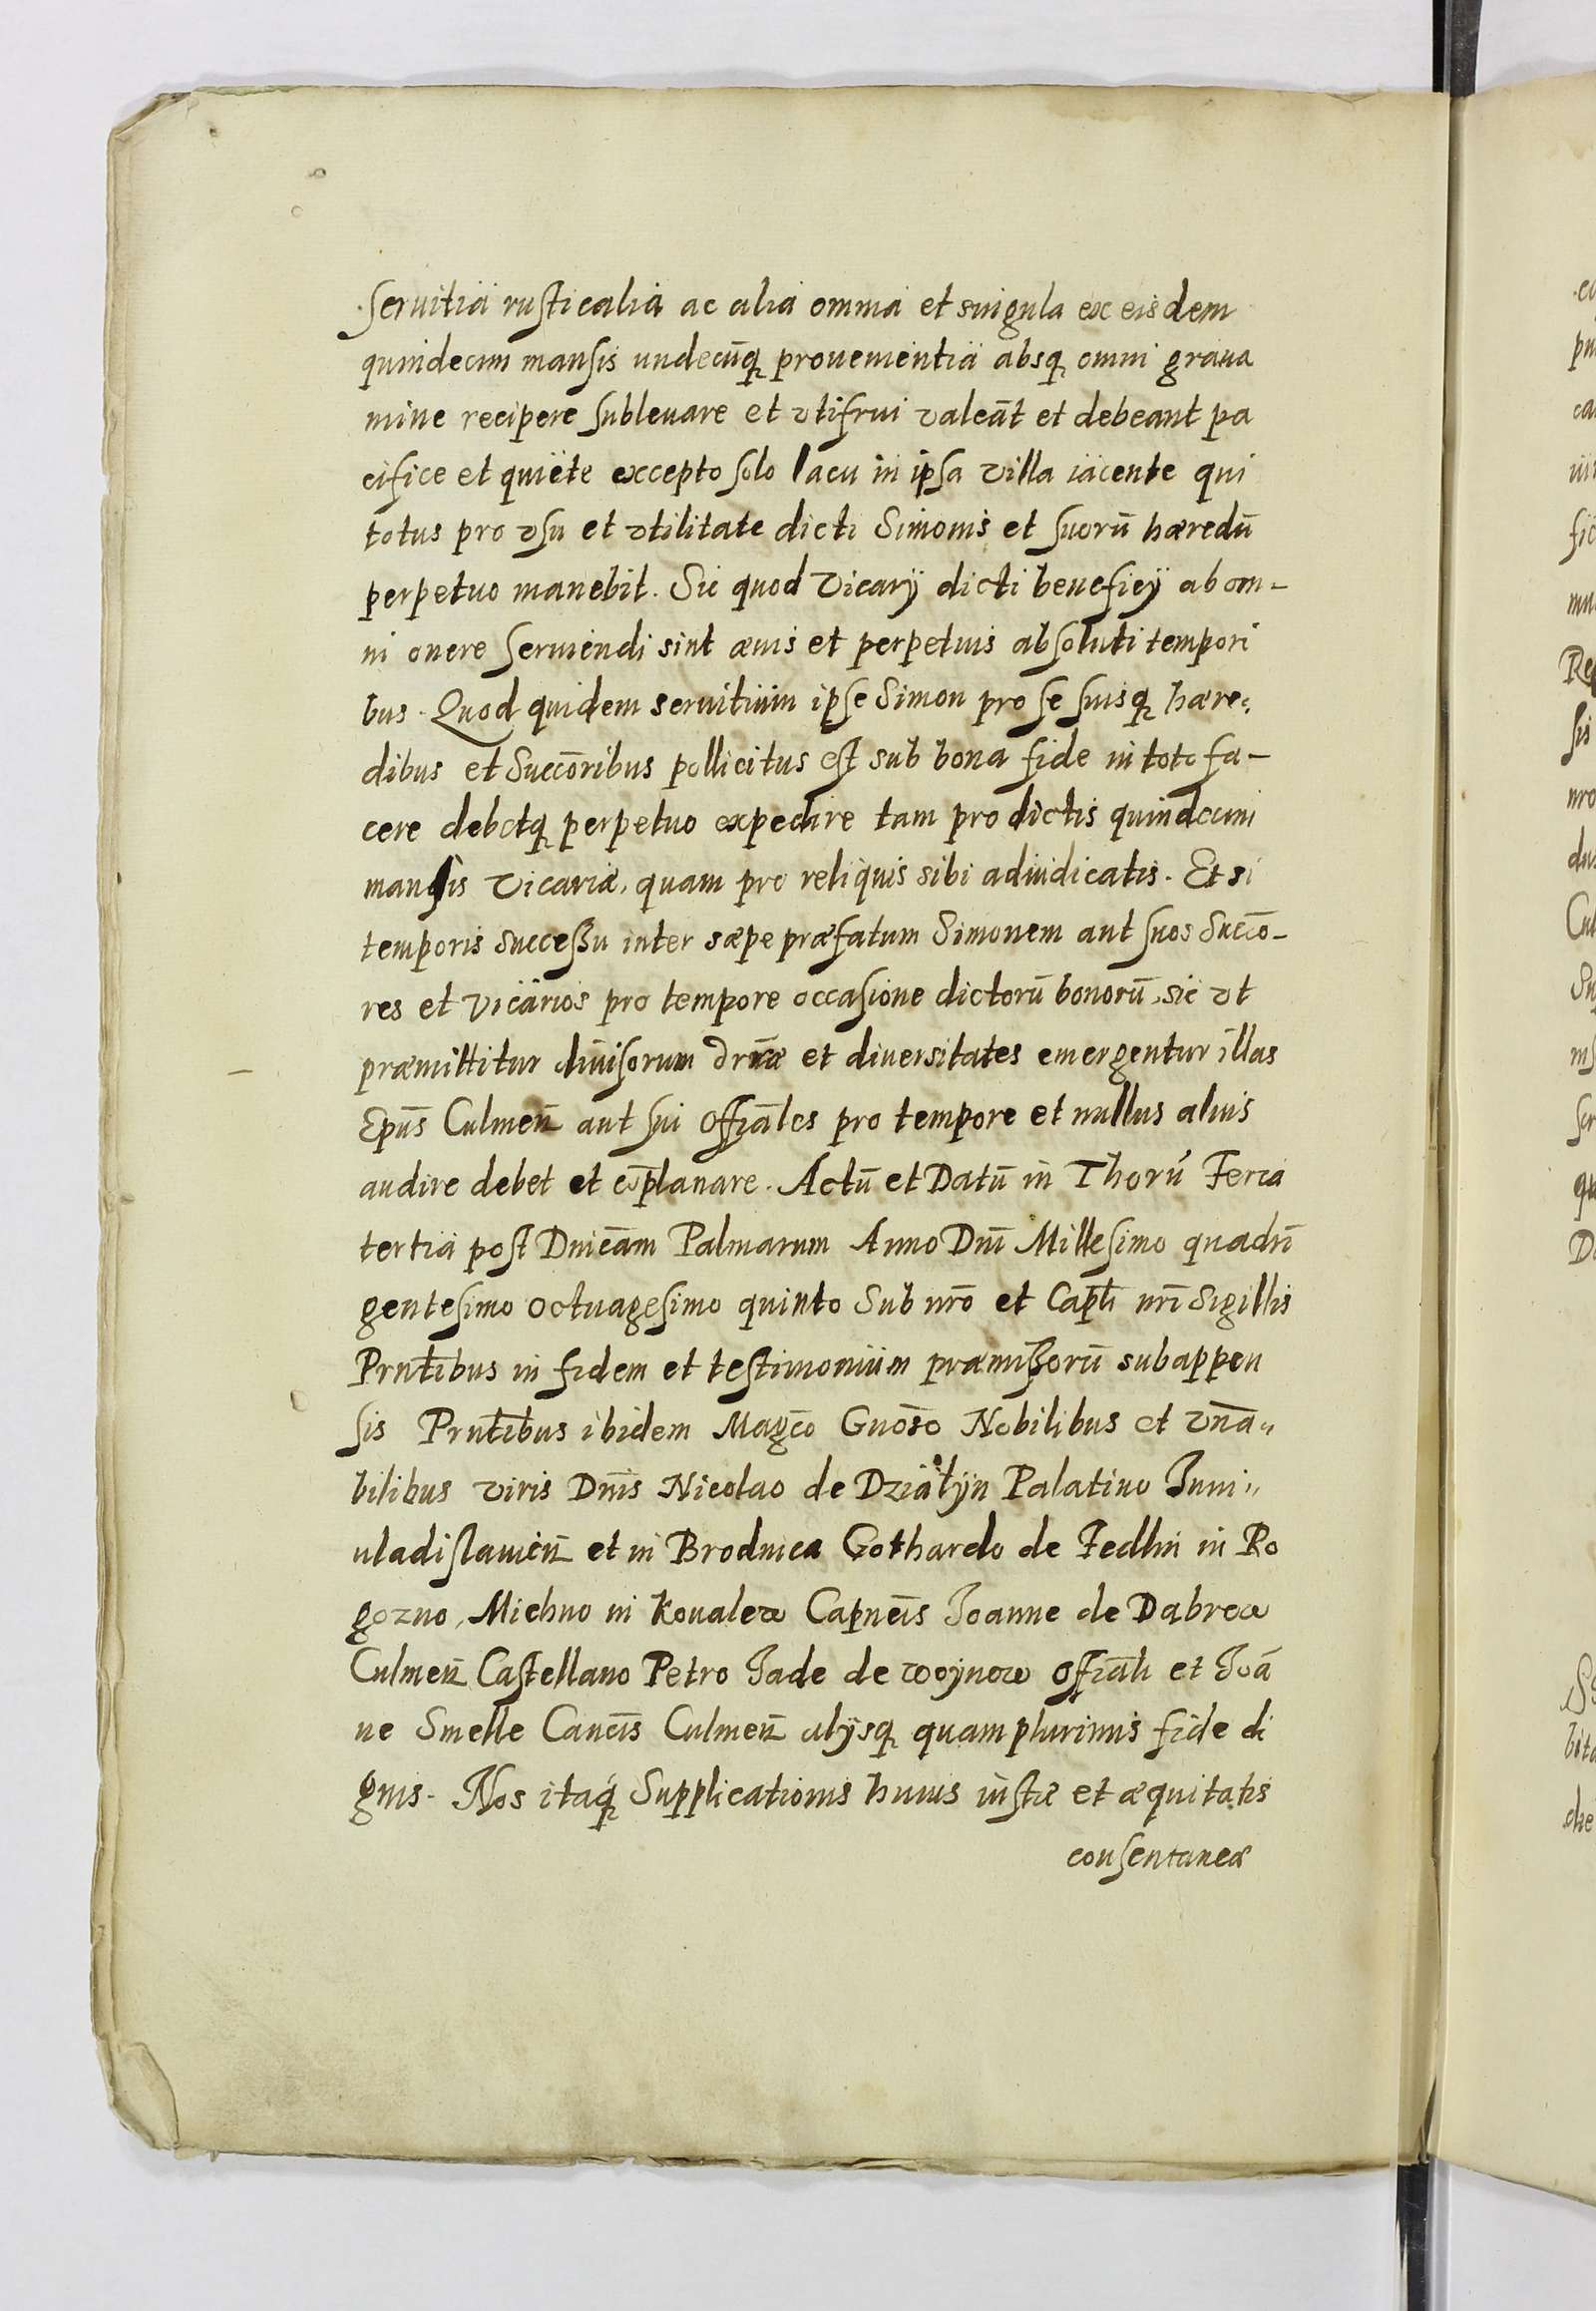 seruitia rusticalia ac alia omnia et singula ex eisdem
quindecim mansis undecūq prouenientia absq omni graua
mine recipere subleuare et vtifrui valeāt et debeant pa
cifice et quiete excepto solo lacu in ipsa villa iacente qui
totus pro vsu et vtilitate dicti Simonis et suorū hæredū
perpetuo manebit. Sic quod Vicarÿ dicti beneficÿ ab om-
ni onere seruiendi sint æuis et perpetuis absoluti tempori
bus. Quod quidem seruitium ipse Simon pro se suisq hære-
dibus et Succōribus pollicitus est sub bona fide in toto fa-
cere debetq perpetuo expedire tam pro dictis quindecim
mansis Vicariæ, quam pro reliquis sibi adiudicatis. Et si
temporis successu inter sæpe præfatum Simonem aut suos Succō-
res et Vicarios pro tempore occasione dictorū bonorū, sic vt
præmittitur diuisorum dr̄iæ et diuersitates emergentur illas
Epūs Culmen̄ aut sui Offiāles pro tempore et nullus alius
audire debet et cōplanare. Actū et Datū in Thorū Feria
tertia post Dnicām Palmarum Anno Dnī Millesimo quadri
gentesimo octuagesimo quinto Sub nrō et Caplī nrī Sigillis
Prntībus in fidem et testimonium præmissorū subappen
sis Prntībus ibidem Magco Gnōso Nobilibus et Vnā-
bilibus viris Dnīs Nicolao de Działyn Palatino Iuni-
uladislauien̄ et in Brodnica Gothardo de Fedlin in Ro
gozno, Michno in Koualew Capneīs Ioanne de Dabrow
Culmen̄ Castellano Petro Iade de woynow offiāli et Ioā
ne Smelle Caneīs Culmen̄ alÿsq quam plurimis fide di
gnis. Nos itaq Supplicationis huius iustæ et æquitatis
consentaneæ